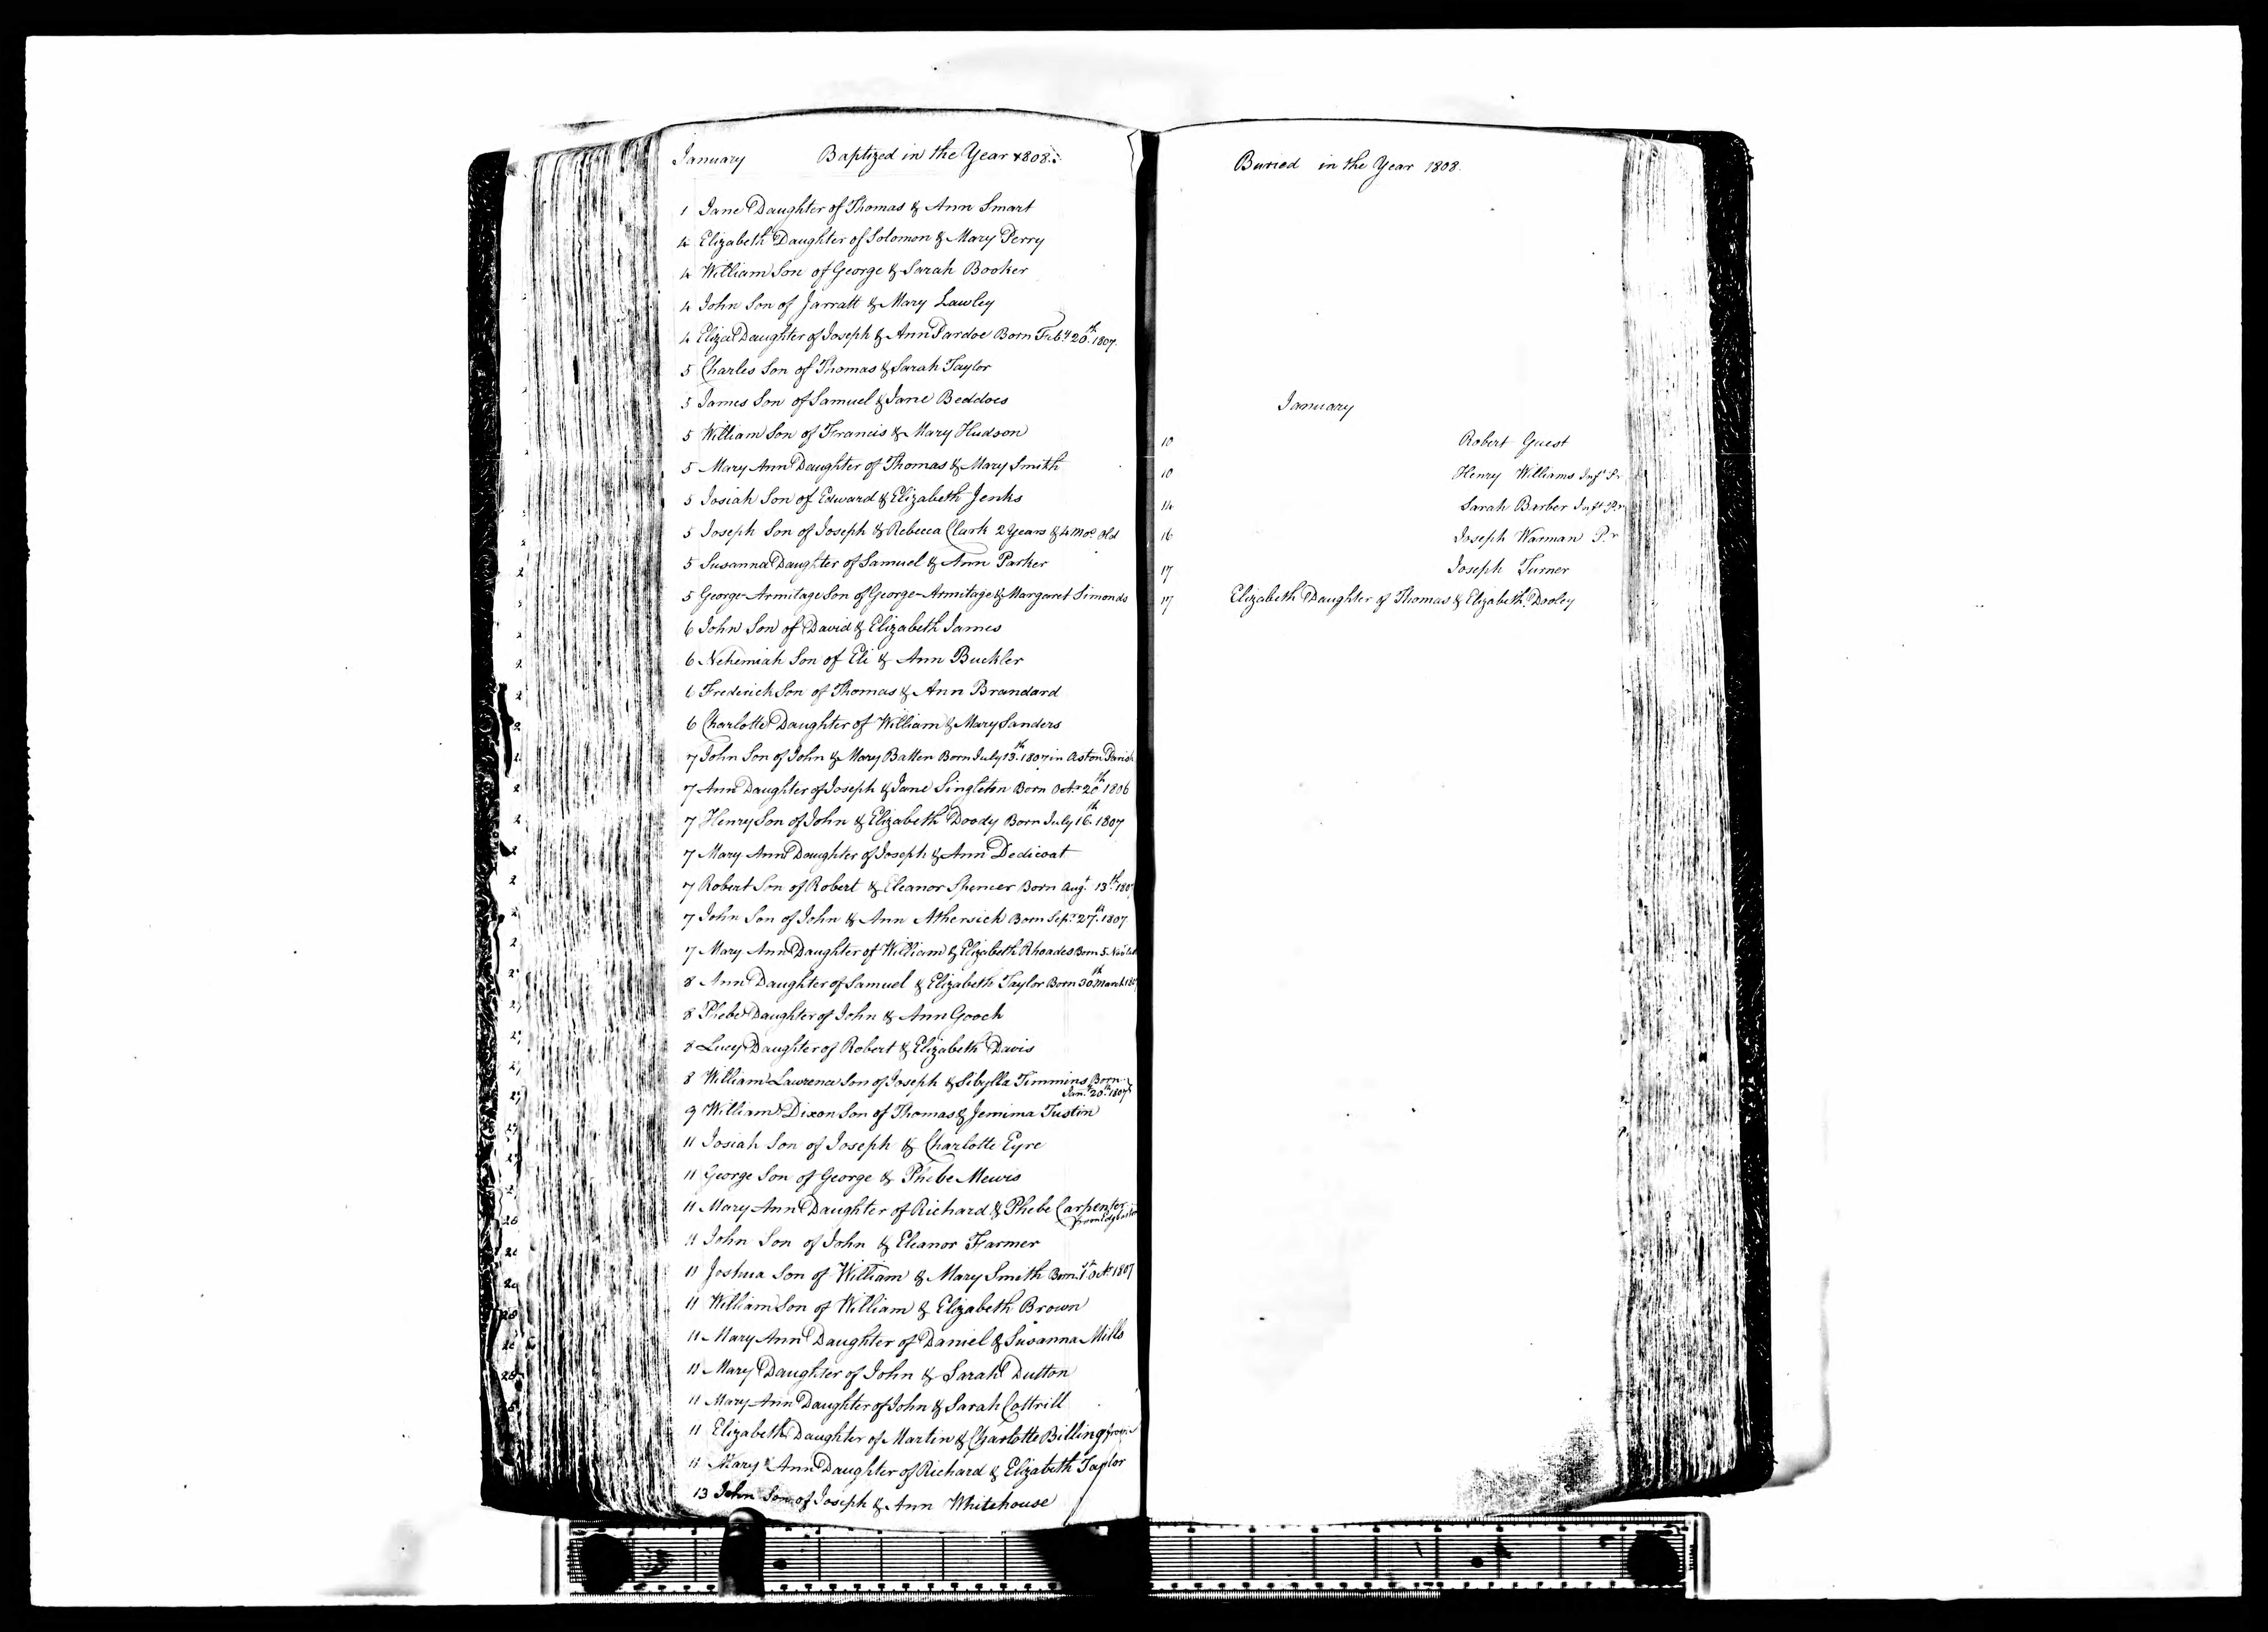 January Baptized in the Year 1808.
1 Jane Daughter of Thomas & Ann Smart
4 Elizabeth Daughter of Solomon & Mary Perry
4 William Son of George & Sarah Booker
4 John Son of Jarratt & Mary Lawley
4 Eliza Daughter of Joseph & Ann Pardoe Born Feb.y 20th 1807.
5 Charles Son of Thomas & Sarah Taylor
5 James Son of Samuel & Jane Beddoes
5 William Son of Francis & Mary Hudson
5 Mary Ann Daughter of Thomas & Mary Smith
5 Josiah Son of Edward & Elizabeth Jenks
5 Joseph Son of Joseph & Rebecca Clark 2 Years & 4 Mos. Old
5 Susanna Daughter of Samuel & Ann Parker
5 George-Armitage Son of George-Armitage & Margaret Simonds
6 John Son of David & Elizabeth James
6 Nehemiah Son of Eli & Ann Buckler
6 Frederick Son of Thomas & Ann Brandard
6 Charlotte Daughter of William & Mary Sanders
7 John Son of John & Mary Batten Born July 13th 1807 in Aston Parish
7 Ann Daughter of Joseph & Jane Singleton Born Octr. 20th 1806
7 Henry Son of John & Elizabeth Doody Born July 16th 1807
7 Mary Ann Daughter of Joseph & Ann Dedicoat
7 Robert Son of Robert & Eleanor Spencer Born Augt. 13th 1807
7 John Son of John & Ann Athersich Born Sepr. 27th 1807
7 Mary Ann Daughter of William & Elizabeth Rhoades Born 5 Novr.
8 Ann Daughter of Samuel & Elizabeth Taylor Born 30th March 1807
8 Phebe Daughter of John & Ann Gooch
8 Lucy Daughter of Robert & Elizabeth Davis
8 William Lawrence Son of Joseph & Sibylla Timmins Born
Jan.y 20th 1807
9 William Dixon Son of Thomas & Jemima Tustin
11 Josiah Son of Joseph & Charlotte Eyre
11 George Son of George & Phebe Mewis
11 Mary Ann Daughter of Richard & Phebe Carpenter
from Edgbaston
11 John Son of John & Eleanor Farmer
11 Joshua Son of William & Mary Smith Born 1st Octr. 1807
11 William Son of William & Elizabeth Brown
11 Mary Ann Daughter of Daniel & Susanna Mills
11 Mary Daughter of John & Sarah Dutton
11 Mary Ann Daughter of John & Sarah Cottrill
11 Elizabeth Daughter of Martin & Charlotte Billing
11 Mary Ann Daughter of Richard & Elizabeth Taylor
13 John Son of Joseph & Ann Whitehouse
Buried in the Year 1808.
January
10 Robert Guest
10 Henry Williams Inft. Pr
14 Sarah Barber Inft. Pr
16 Joseph Warman P.r
17 Joseph Turner
17 Elizabeth Daughter of Thomas & Elizabeth Dooley